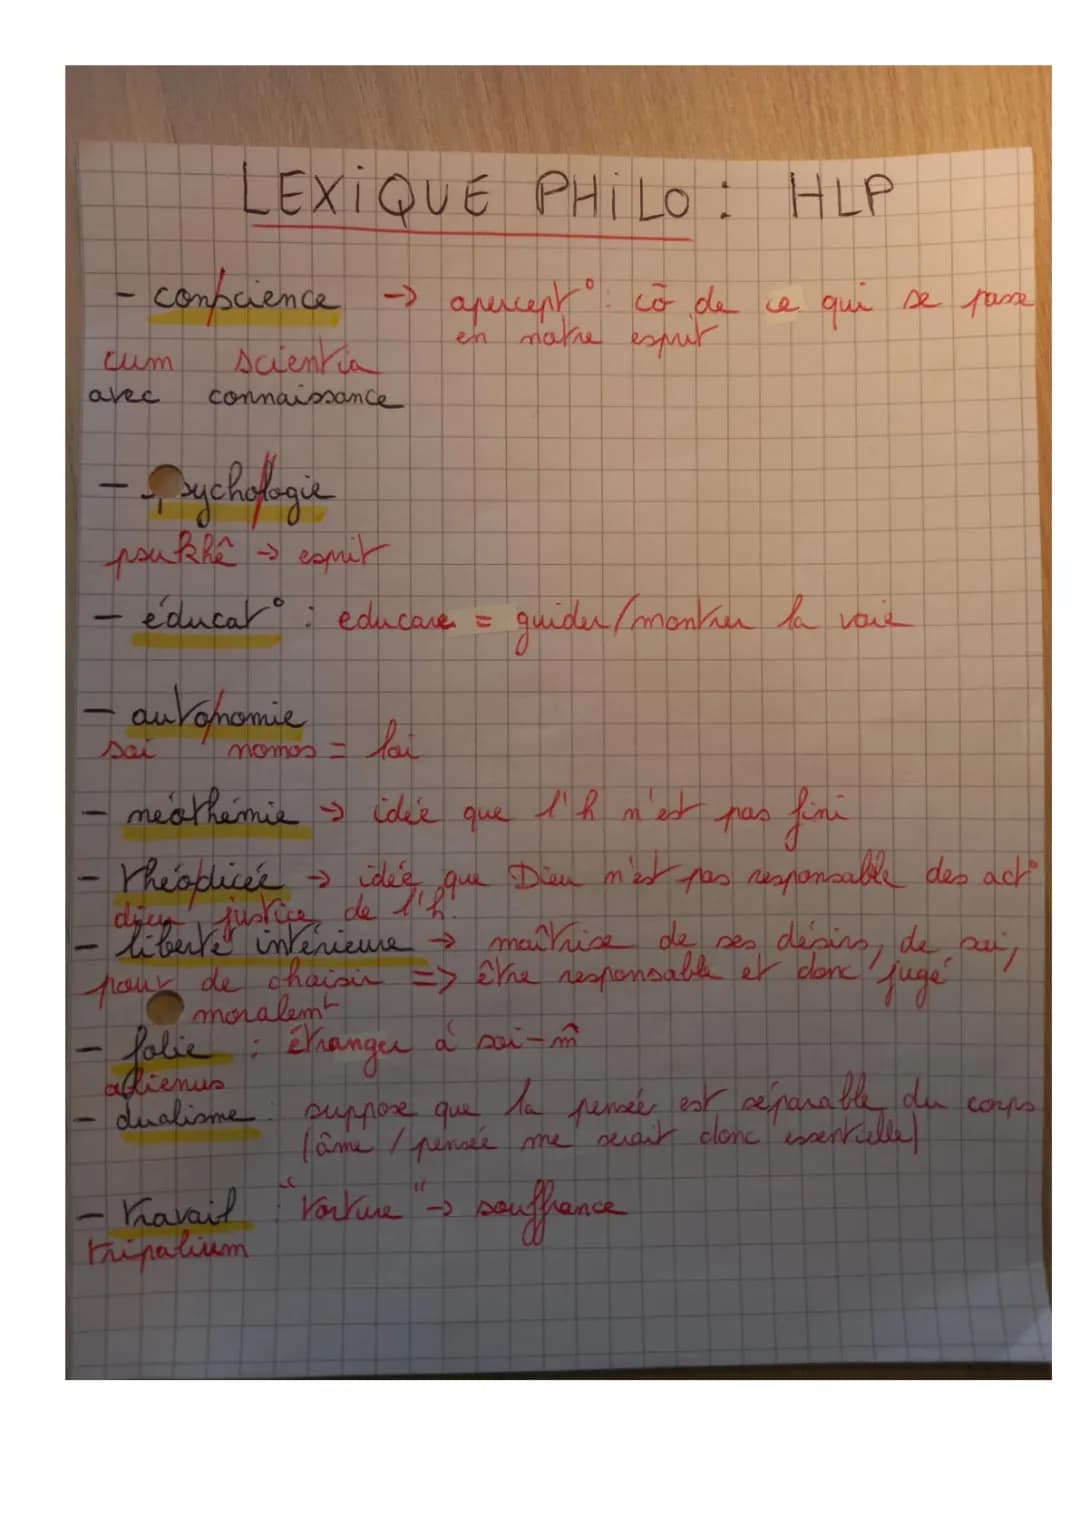 LEXiQUE PHiLO : HLP
- conscience → apercept° : cō de ce qui se passe
en notre esprit
cum scientia
avec connaissance
- psychologie
psukhê → esprit
- éducat° : educare = guider/montrer la voie
- autonomie
soi nomos = loi
- néothémie → idée que l'h n'est pas fini
- théodicée → idée que Dieu n'est pas responsable des act°
dieu justice de l'h.
- liberté intérieure → maîtrise de ses désirs, de soi,
pour de choisir => être responsable et donc jugé
moralemt
- folie : étranger à soi-m̂
alienus
- dualisme : suppose que la pensée est séparable du corps
(âme / pensée me serait donc essentielle)
- travail : "torture" → souffrance
tripalium